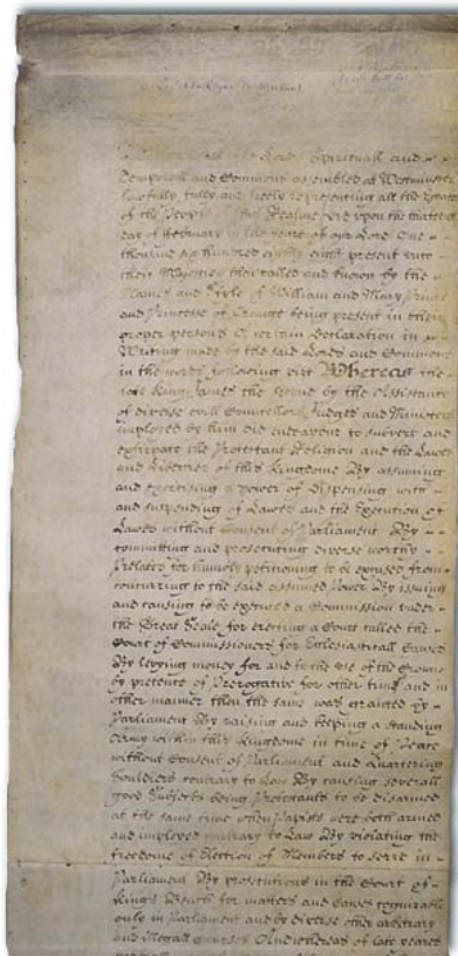 the Lords Spirituall and
Temporall and Comons assembled at Westminster
lawfully fully and freely representing all the Estates
of the People of this Realme did upon the thirteenth
day of February in the yeare of our Lord One
thousand six hundred eighty eight present unto
their Majesties then called and known by the
Names and Stile of William and Mary Prince
and Princesse of Orange being present in their
proper persons A certain Declaration in
Writing made by the said Lords and Comons
in the words following viz Whereas the
late King James the second by the Assistance
of diverse evill Councellors Judges and Ministers
imployed by him did endeavour to subvert and
extirpate the Protestant Religion and the Lawes
and Liberties of this Kingdome By assuming
and exercising a power of Dispensing with
and suspending of Lawes and the Execution of
Lawes without Consent of Parliament By
committing and prosecuting diverse worthy
Prelates for humbly petitioning to be excused from
concurring to the said assumed Power By issuing
and causing to be executed a Commission under
the Great Seale for erecting a Court called the
Court of Commissioners for Ecclesiasticall Causes
By levying money for and to the use of the Crowne
by pretence of Prerogative for other time and in
other manner then the same was granted by
Parliament By raising and keeping a standing
Army within this Kingdome in time of Peace
without Consent of Parliament and Quartering
Souldiers contrary to Law By causing severall
good Subjects being Protestants to be disarmed
at the same time when Papists were both armed
and imployed contrary to Law By violating the
freedome of Election of Members to serve in
Parliament By prosecutions in the Court of
Kings Bench for matters and Causes cognizable
only in Parliament and by diverse other arbitrary
and illegall courses And whereas of late yeares